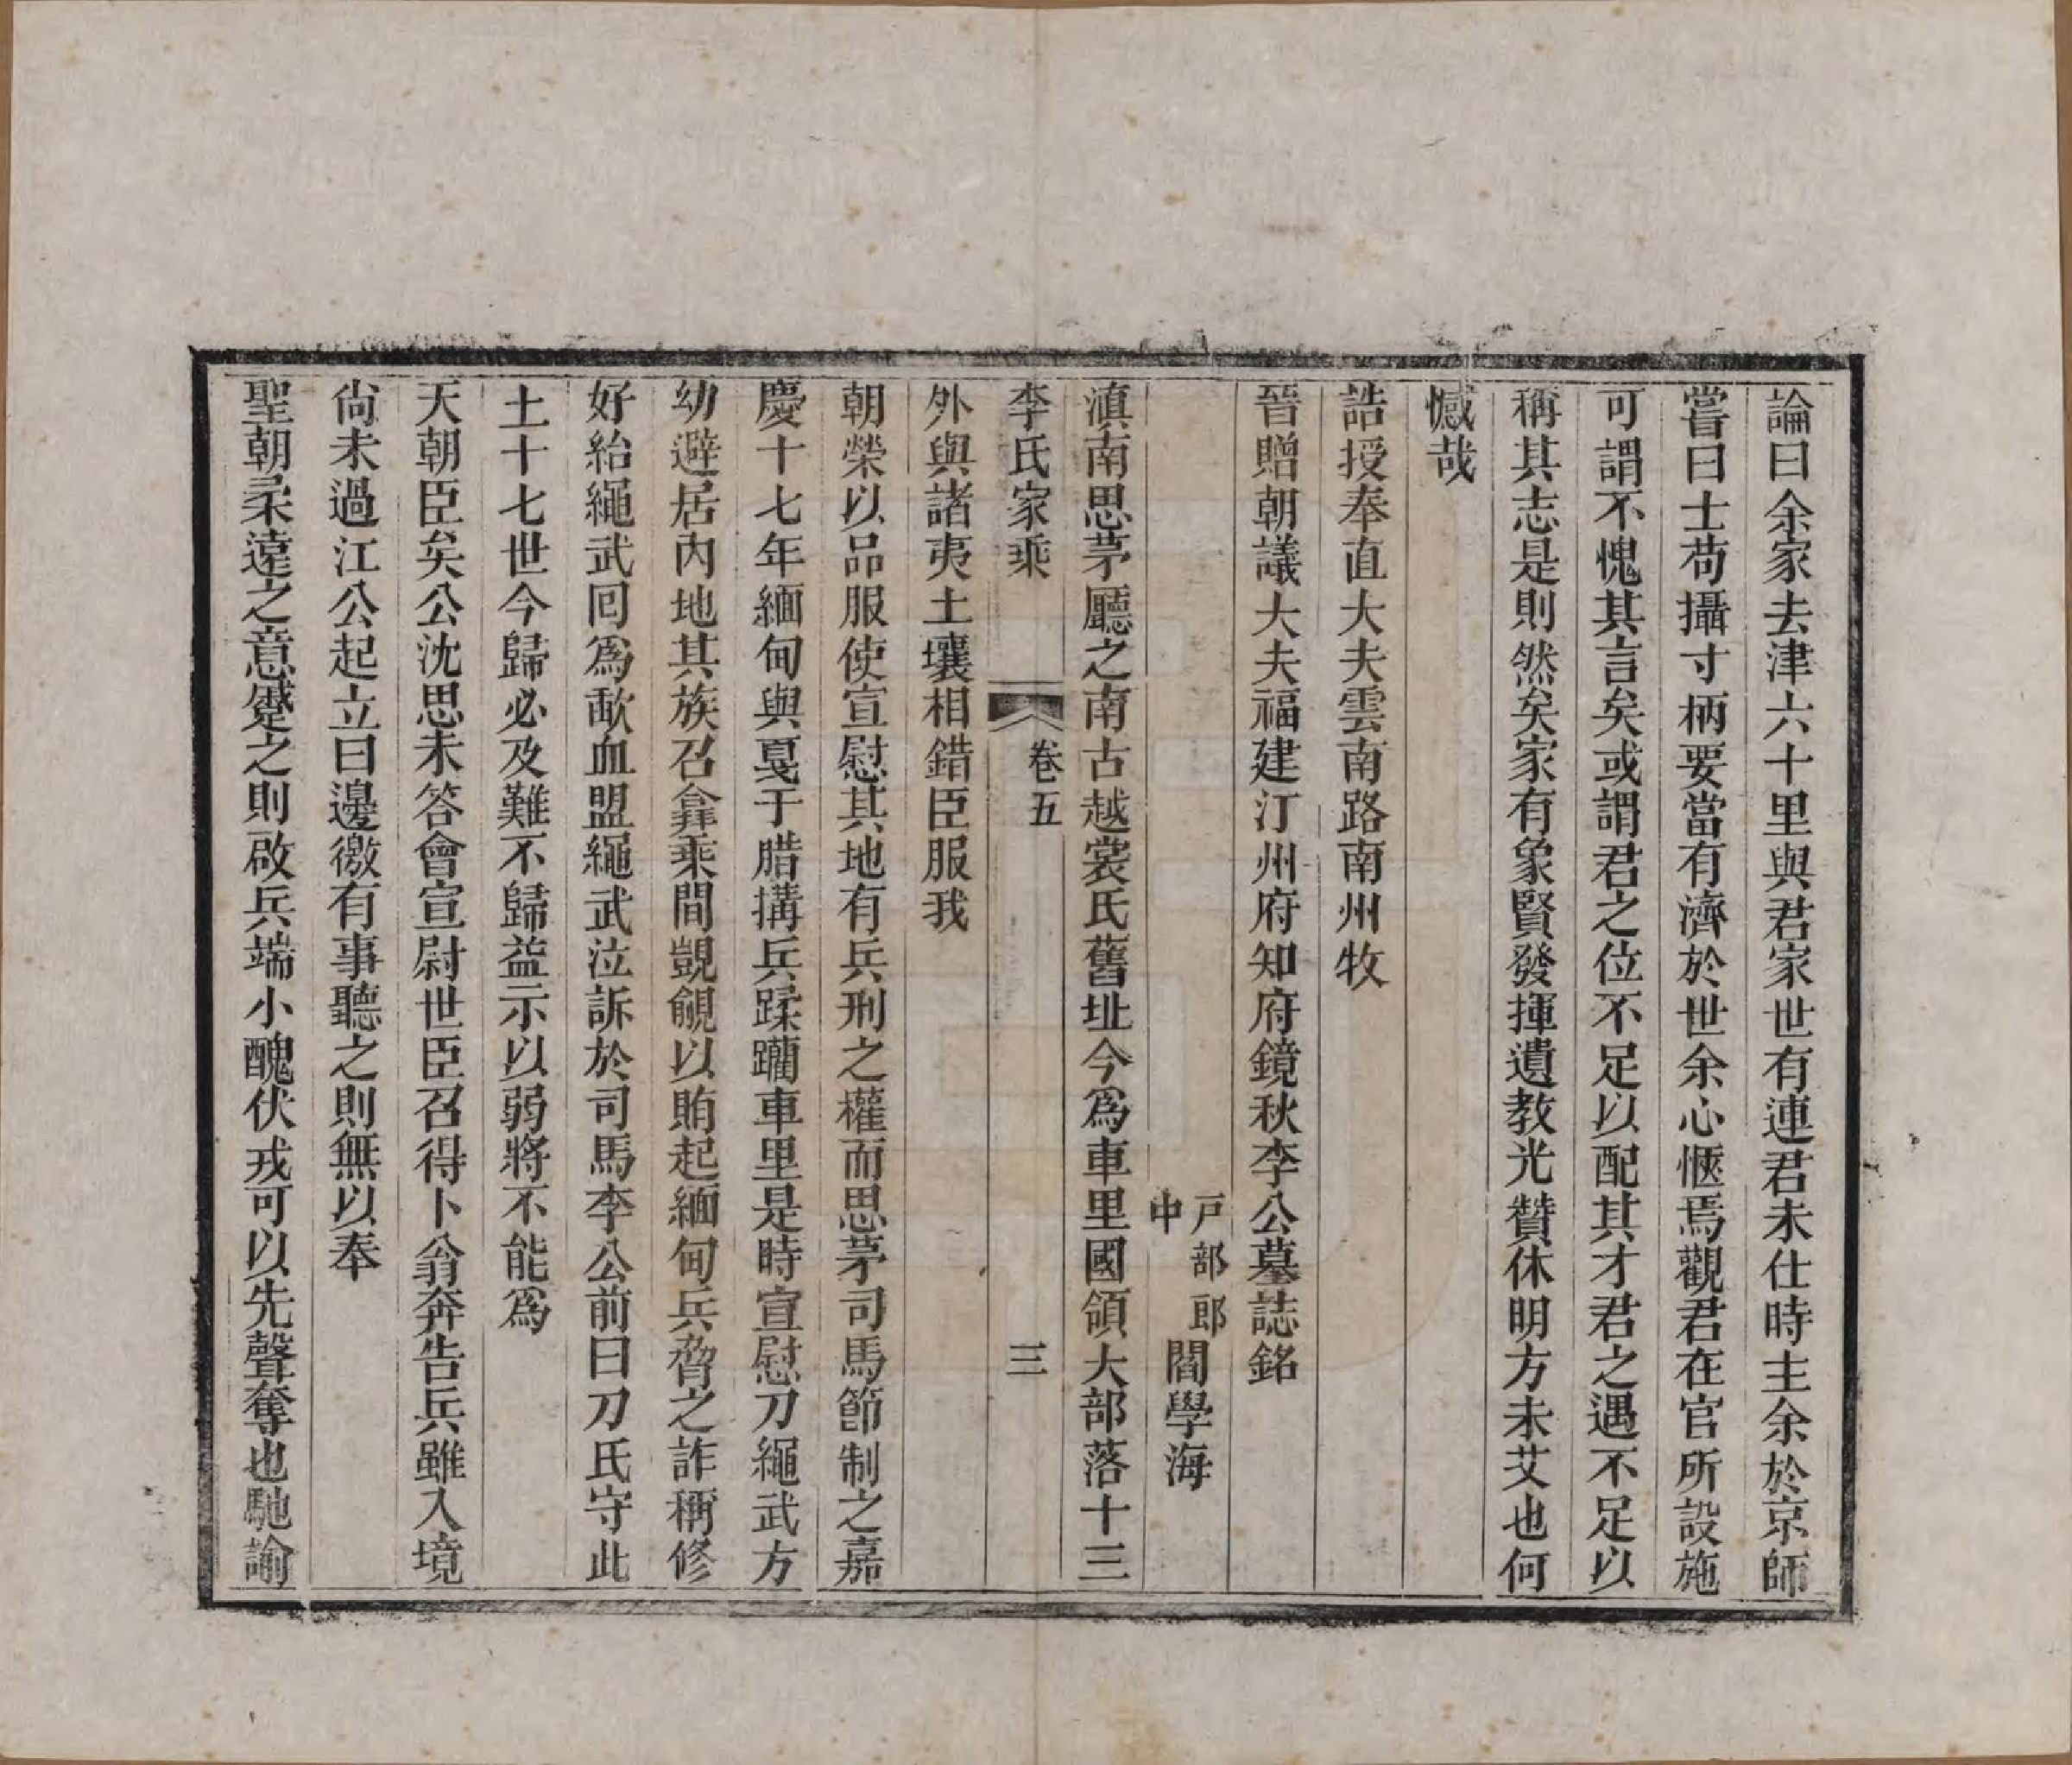 論曰余家去津六十里與君家世有連君未仕時主余於京師
嘗曰士苟攝寸柄要當有濟於世余心愜焉觀君在官所設施
可謂不愧其言矣或謂君之位不足以配其才君之遇不足以
稱其志是則然矣家有象賢發揮遺教光贊休明方未艾也何
憾哉
誥授奉直大夫雲南路南州牧
晉贈朝議大夫福建汀州府知府鏡秋李公墓誌銘
戶部郎中閻學海
滇南思茅廳之南古越裳氏舊址今爲車里國領大部落十三
李氏家乘 卷五 三
外與諸夷土壤相錯臣服我
朝榮以品服使宣慰其地有兵刑之權而思茅司馬節制之嘉
慶十七年緬甸與戛于腊搆兵蹂躪車里是時宣慰刀繩武方
幼避居內地其族召鼐乘間覬覦以賄起緬甸兵脅之詐稱修
好紿繩武囘爲歃血盟繩武泣訴於司馬李公前曰刀氏守此
土十七世今歸必及難不歸益示以弱將不能爲
天朝臣矣公沈思未答會宣尉世臣召得卜翁奔告兵雖入境
尙未過江公起立曰邊徼有事聽之則無以奉
聖朝柔遠之意蹙之則啟兵端小醜伏戎可以先聲奪也馳諭